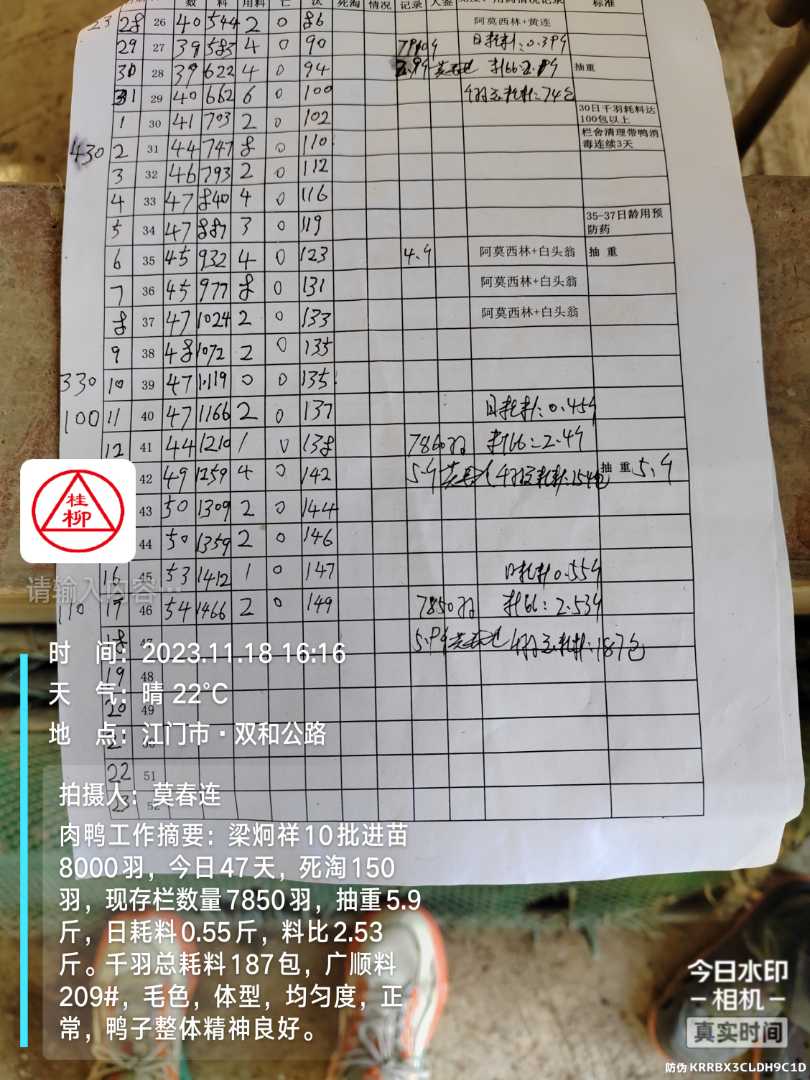 数 料 用料 亡 汰 死淘 情况 记录 人签 标准
23 28 26 40 544 2 0 86 阿莫西林+黄连
29 27 39 583 4 0 90 日耗料:0.39斤
30 28 39 622 4 0 94 抽重
31 29 40 662 6 0 100 千羽总耗料:74包
1 30 41 703 2 0 102 30日千羽耗料达
100包以上
430 2 31 44 747 8 0 110 栏舍清理带鸭消
毒连续3天
3 32 46 793 2 0 112
4 33 47 840 4 0 116
5 34 47 887 3 0 119 35-37日龄用预
防药
6 35 45 932 4 0 123 4.9 阿莫西林+白头翁 抽 重
7 36 45 977 8 0 131 阿莫西林+白头翁
8 37 47 1024 2 0 133 阿莫西林+白头翁
9 38 48 1072 2 0 135
330 10 39 47 1119 0 0 135
100 11 40 47 1166 2 0 137 日耗料:0.45斤
12 41 44 1210 1 0 138 7860羽 料比:2.4斤
42 49 1259 4 0 142 5.9 千羽总耗料:154包 抽 重 5.9
43 50 1309 2 0 144
44 50 1359 2 0 146
16 45 53 1412 1 0 147 日耗料0.55斤
110 17 46 54 1466 2 0 149 7850羽 料比:2.53斤
18 47 5.9斤 莫春连 千羽总耗料:187包
19 48
20 49
22 51
23 52
桂
柳
请输入内容...
时 间：2023.11.18 16:16
天 气：晴 22℃
地 点：江门市·双和公路
拍摄人：莫春连
肉鸭工作摘要：梁炯祥10批进苗
8000羽，今日47天，死淘150
羽，现存栏数量7850羽，抽重5.9
斤，日耗料0.55斤，料比2.53
斤。千羽总耗料187包，广顺料
209#，毛色，体型，均匀度，正
常，鸭子整体精神良好。
今日水印
-相机-
真实时间
防伪 KRRBX3CLDH9C1D